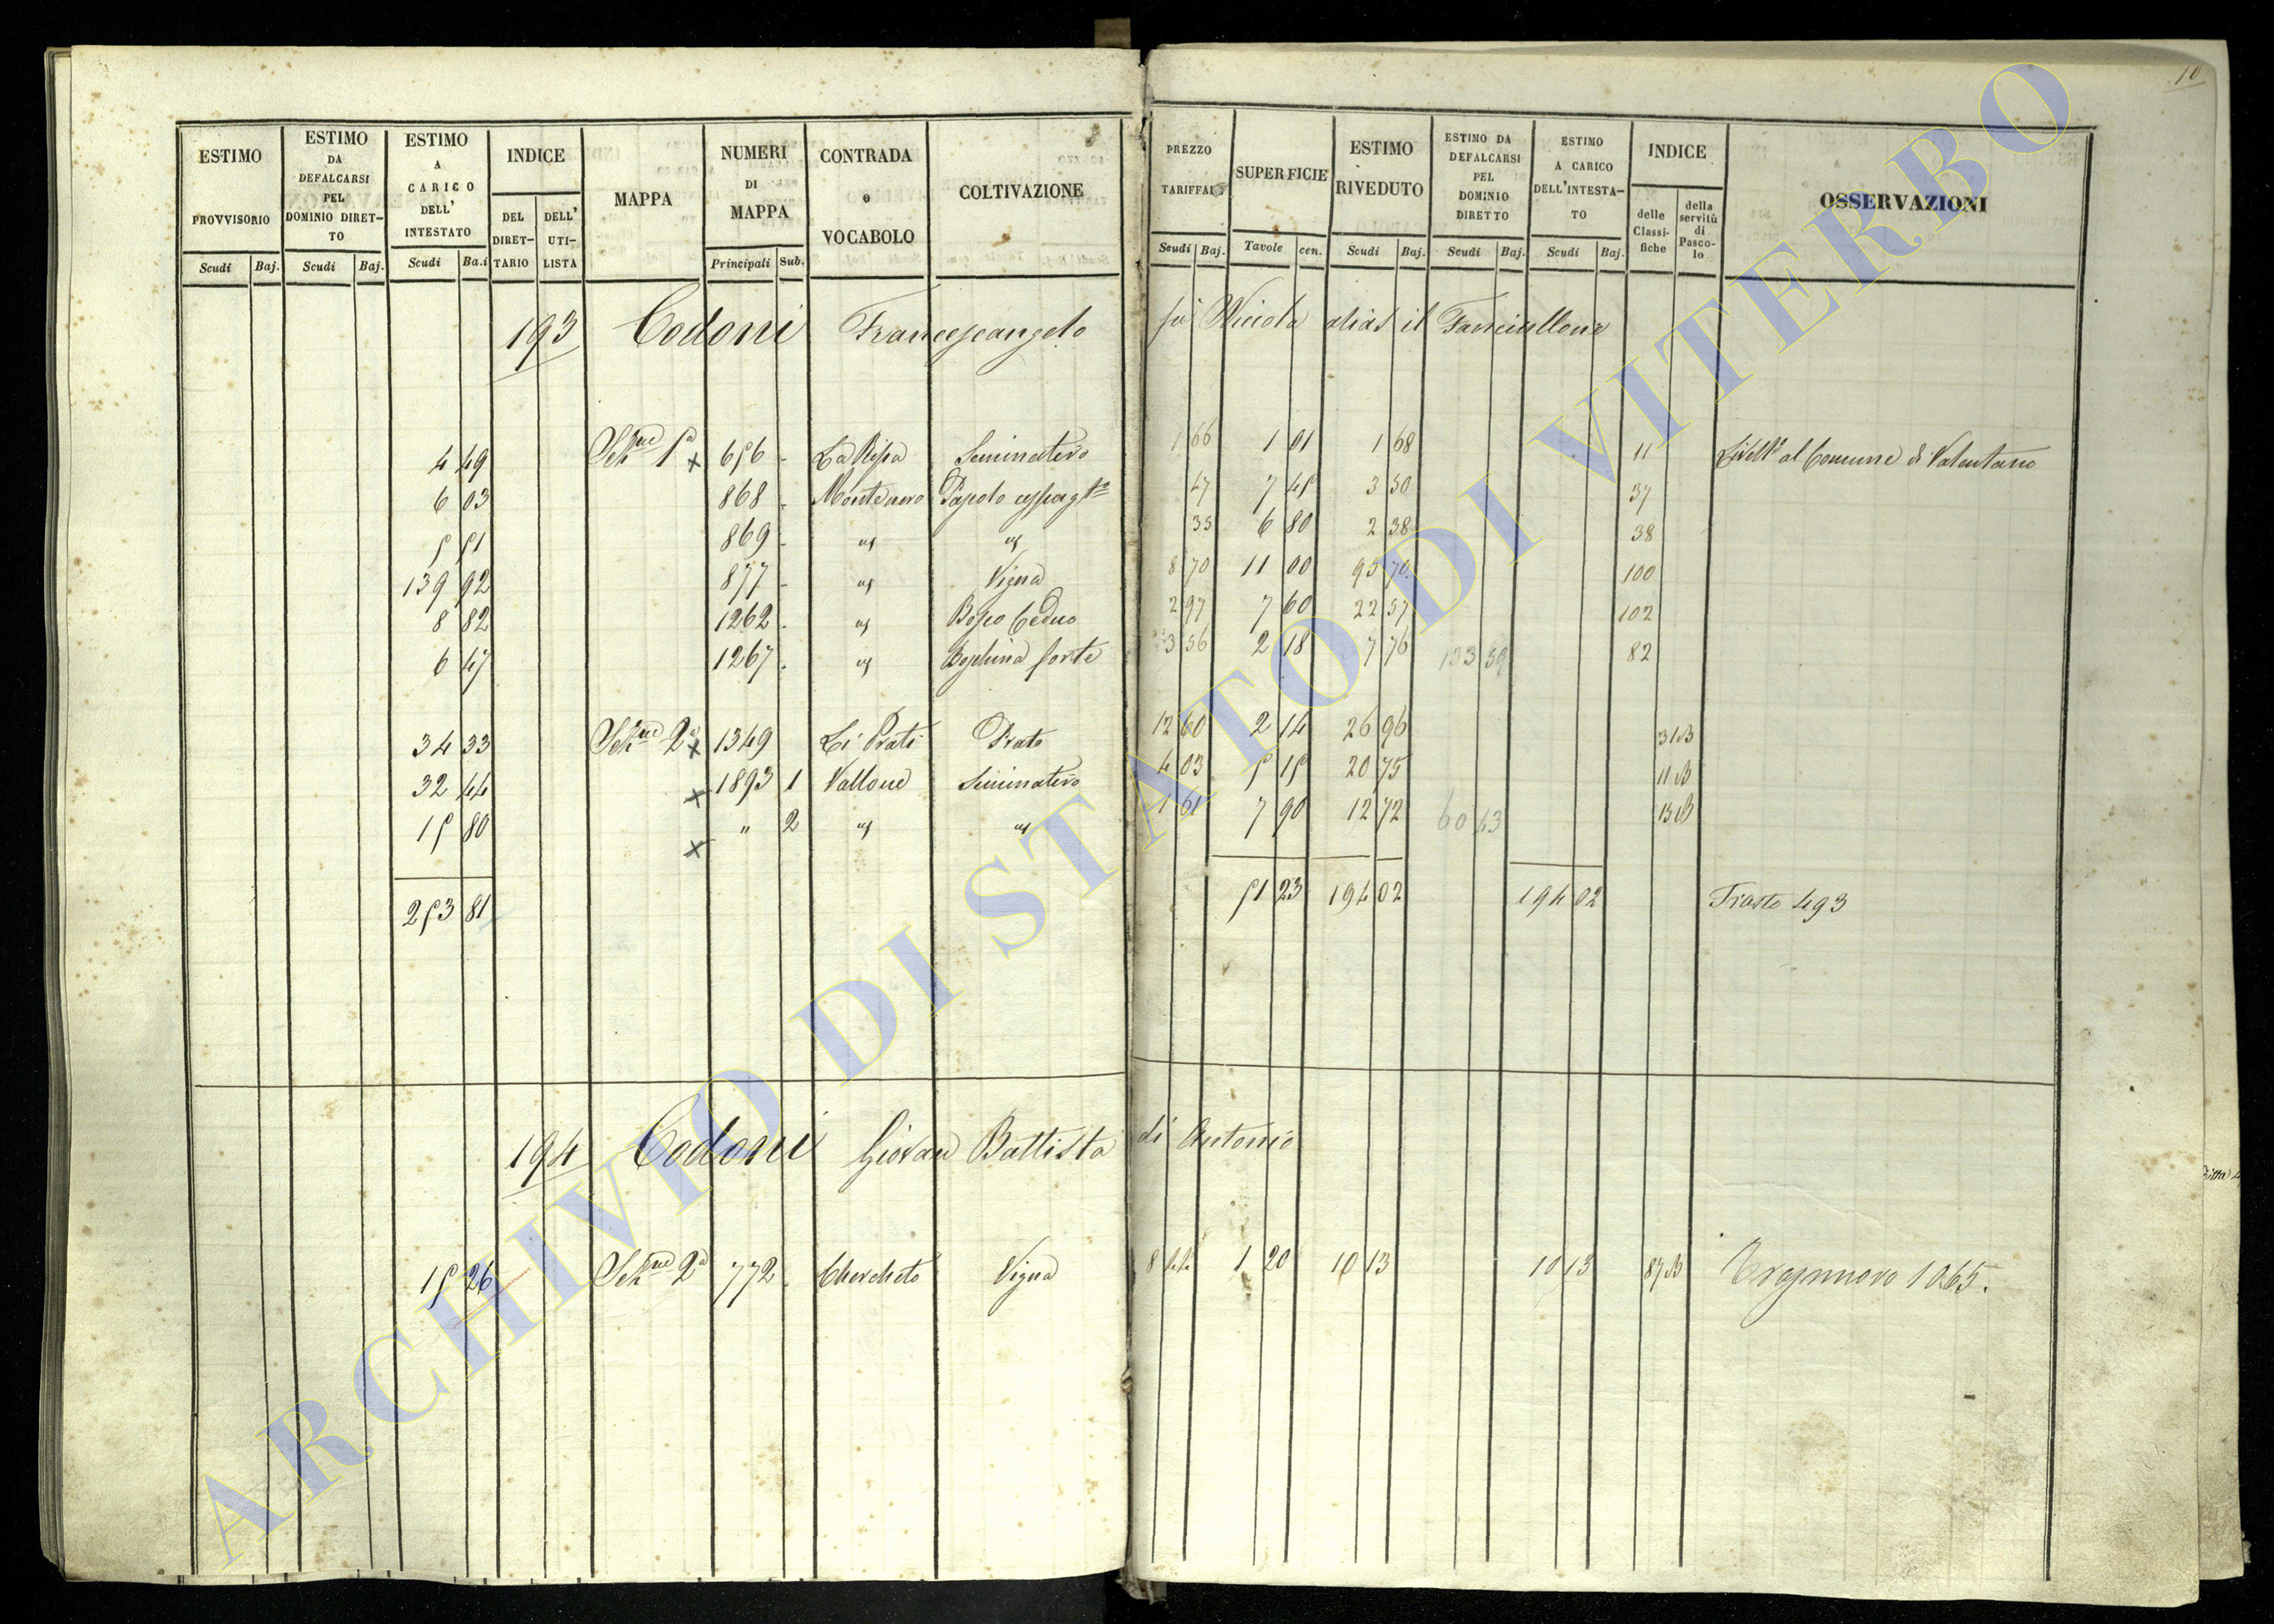 10
ESTIMO PROVVISORIO Scudi Baj.
ESTIMO DA DEFALCARSI PEL DOMINIO DIRETTO Scudi Baj.
ESTIMO A CARICO DELL' INTESTATO Scudi Ba.i
INDICE DEL DIRETTARIO DELL' UTILISTA
MAPPA
NUMERI DI MAPPA Principali Sub.
CONTRADA o VOCABOLO
COLTIVAZIONE
PREZZO TARIFFALE Scudi Baj.
SUPERFICIE Tavole cen.
ESTIMO RIVEDUTO Scudi Baj.
ESTIMO DA DEFALCARSI PEL DOMINIO DIRETTO Scudi Baj.
ESTIMO A CARICO DELL'INTESTATO Scudi Baj.
INDICE delle Classifiche della servitù di Pascolo
OSSERVAZIONI
193 Codoni Francescangelo fu Nicola alias il Fanciullone
4 49 Sez.ne 1a x 656 - La Ripa Seminativo 1 66 1 01 1 68 11 Livell.o al Comune di Valentano
6 03 868 - Montenero 47 7 45 3 50 37
5 51 869 - " " 35 6 80 2 38 38
139 92 877 - " Vigna 8 70 11 00 95 70 100
8 82 1262 - " Bosco Ceduo 2 97 7 60 22 57 102
6 47 1267 - " Boschina forte 3 56 2 18 7 76 133 59 82
34 33 Sez.ne 2a x 1349 Li Prati Prato 12 60 2 14 26 96 31 B
32 44 x 1893 1 Vallone Seminativo 4 03 5 15 20 75 11 B
15 80 x " 2 " " 1 61 7 90 12 72 60 43 13 B
253 81 51 23 194 02 194 02 Trasto 493
194 Codoni Giovan Battista di Antonio
15 26 Sez.ne 2a 772 - Chercheto Vigna 8 44 1 20 10 13 10 13 87 B 1065.
ARCHIVIO DI STATO DI VITERBO